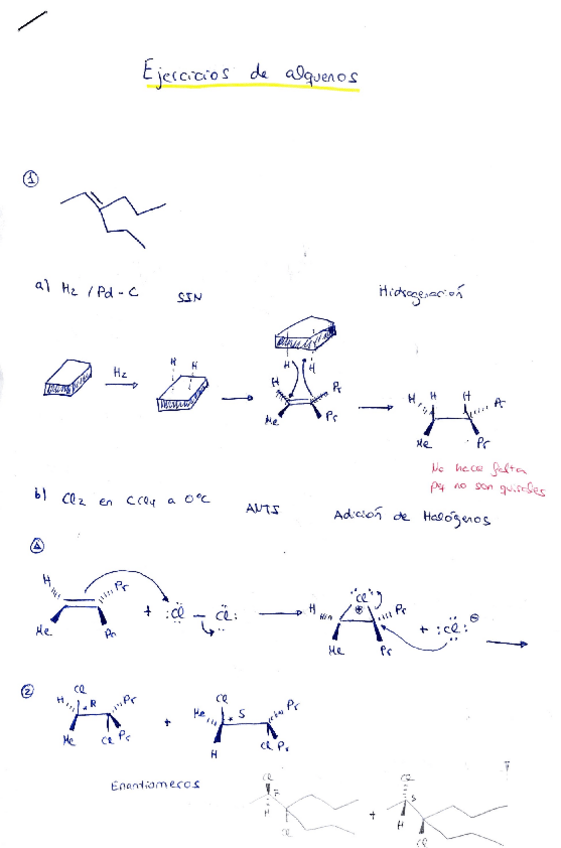 Ejercicios de alquenos
①
a) H₂ / Pd - C SIN Hidrogenación
H₂
H H
H H
H Pr
Me Pr
H H H
Me Pr
No hace falta
pq no son quirales
b) Cl₂ en CCl₄ a 0°C ANTI Adición de Halógenos
H Pr + :Cl — Cl: H Cl ⊕ Pr + :Cl: ⊖
Me Pr Me Pr
②
Cl Cl
H * R Pr + Me * S Pr
Me Cl Pr H Cl Pr
Enantiomeros
Cl Cl
H + H S
Cl Cl